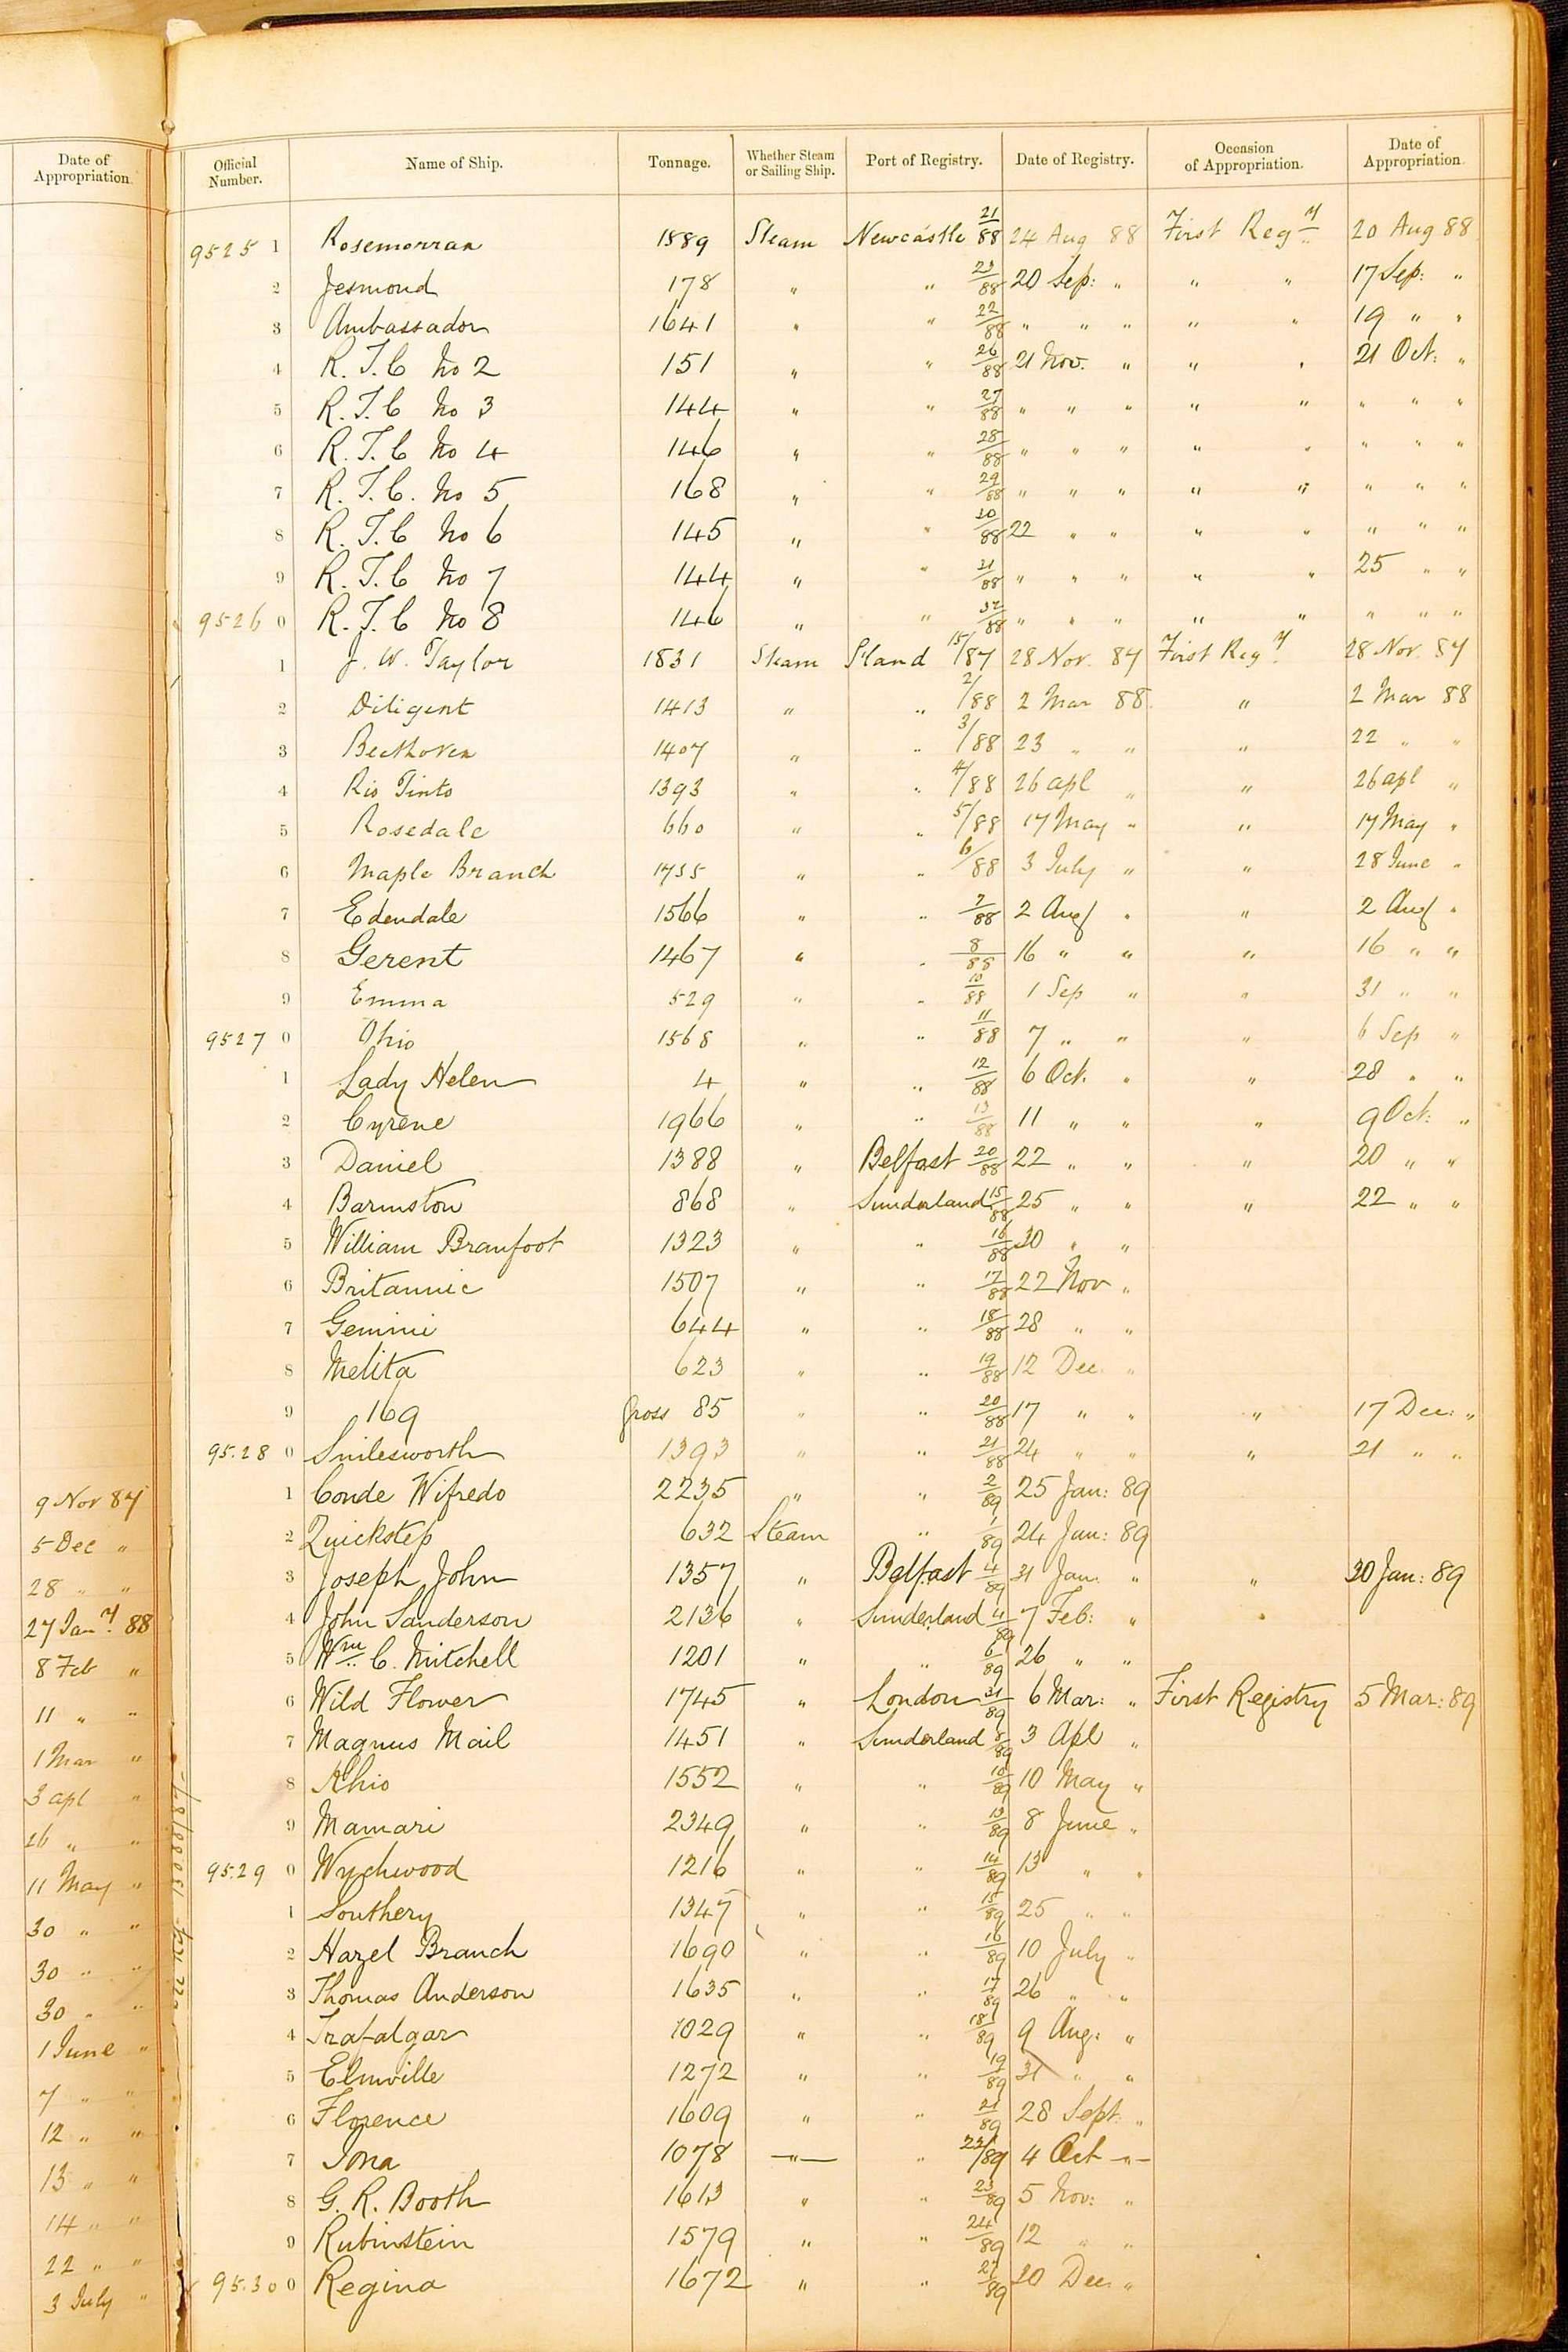 Date of Appropriation.
9 Nov 87
5 Dec "
28 " "
27 Jany 88
8 Feb "
11 " "
1 Mar "
3 apl "
26 " "
11 May "
30 " "
30 " "
30 " "
1 June "
7 " "
12 " "
13 " "
14 " "
22 " "
3 July "
Official Number. Name of Ship. Tonnage. Whether Steam or Sailing Ship. Port of Registry. Date of Registry. Occasion of Appropriation. Date of Appropriation.
9525 1 Rosemorran 1589 Steam Newcastle 21/88 24 Aug 88 First Regy 20 Aug 88
2 Jesmond 178 " " 23/88 20 Sep: " " " 17 Sep: "
3 Ambassador 1641 " " 22/88 " " " " " 19 " "
4 R.T.C No 2 151 " " 26/88 21 Nov. " " " 21 Oct: "
5 R.T.C No 3 144 " " 27/88 " " " " " " " "
6 R.T.C No 4 146 " " 28/88 " " " " " " " "
7 R.T.C. No 5 168 " " 29/88 " " " " " " " "
8 R.T.C No 6 145 " " 30/88 22 " " " " " " "
9 R.T.C No 7 144 " " 31/88 " " " " " 25 " "
9526 0 R.T.C No 8 146 " " 32/88 " " " " " " " "
1 J. W. Taylor 1831 Steam S'land 15/87 28 Nov. 87 First Regy 28 Nov. 87
2 Diligent 1413 " " 2/88 2 Mar 88 " 2 Mar 88
3 Beethoven 1407 " " 3/88 23 " " " 22 " "
4 Rio Tinto 1393 " " 4/88 26 apl " " 26 apl "
5 Rosedale 660 " " 5/88 17 May " " 17 May "
6 Maple Branch 1755 " " 6/88 3 July " " 28 June "
7 Edendale 1566 " " 7/88 2 Aug " " 2 Aug "
8 Gerent 1467 " " 8/88 16 " " " 16 " "
9 Emma 529 " " 10/88 1 Sep " " 31 " "
9527 0 Ohio 1568 " " 11/88 7 " " " 6 Sep "
1 Lady Helen 4 " " 12/88 6 Oct. " " 28 " "
2 Cyrene 1966 " " 13/88 11 " " " 9 Oct: "
3 Daniel 1388 " Belfast 20/88 22 " " " 20 " "
4 Barmston 868 " Sunderland 15/88 25 " " " 22 " "
5 William Branfoot 1323 " " 16/88 30 " "
6 Britannic 1507 " " 17/88 22 Nov "
7 Gemini 644 " " 18/88 28 " "
8 Melita 623 " " 19/88 12 Dec. "
9 169 Gross 85 " " 20/88 17 " " " 17 Dec: "
9528 0 Snilesworth 1393 " " 21/88 24 " " " 21 " "
1 Conde Wifredo 2235 " " 2/89 25 Jan: 89
2 Quickstep 632 Steam " 1/89 24 Jan: 89
3 Joseph John 1357 " Belfast 4/89 31 Jan. " " 30 Jan: 89
4 John Sanderson 2136 " Sunderland 4/89 7 Feb: " "
5 Wm. C. Mitchell 1201 " " 6/89 26 " "
6 Wild Flower 1745 " London 31/89 6 Mar: " First Registry 5 Mar: 89
7 Magnus Mail 1451 " Sunderland 8/89 3 Apl "
8 Khio 1552 " " 10/89 10 May "
9 Mamari 2349 " " 13/89 8 June "
9529 0 Wychwood 1216 " " 14/89 13 " "
1 Southery 1347 " " 15/89 25 " "
2 Hazel Branch 1690 " " 16/89 10 July "
3 Thomas Anderson 1635 " " 17/89 26 " "
4 Trafalgar 1029 " " 18/89 9 Aug: "
5 Elmville 1272 " " 19/89 31 " "
6 Florence 1609 " " 21/89 28 Sept. "
7 Iona 1078 " " 22/89 4 Oct "
8 G. R. Booth 1613 " " 23/89 5 Nov: "
9 Rubinstein 1579 " " 24/89 12 " "
9530 0 Regina 1672 " " 27/89 20 Dec. "